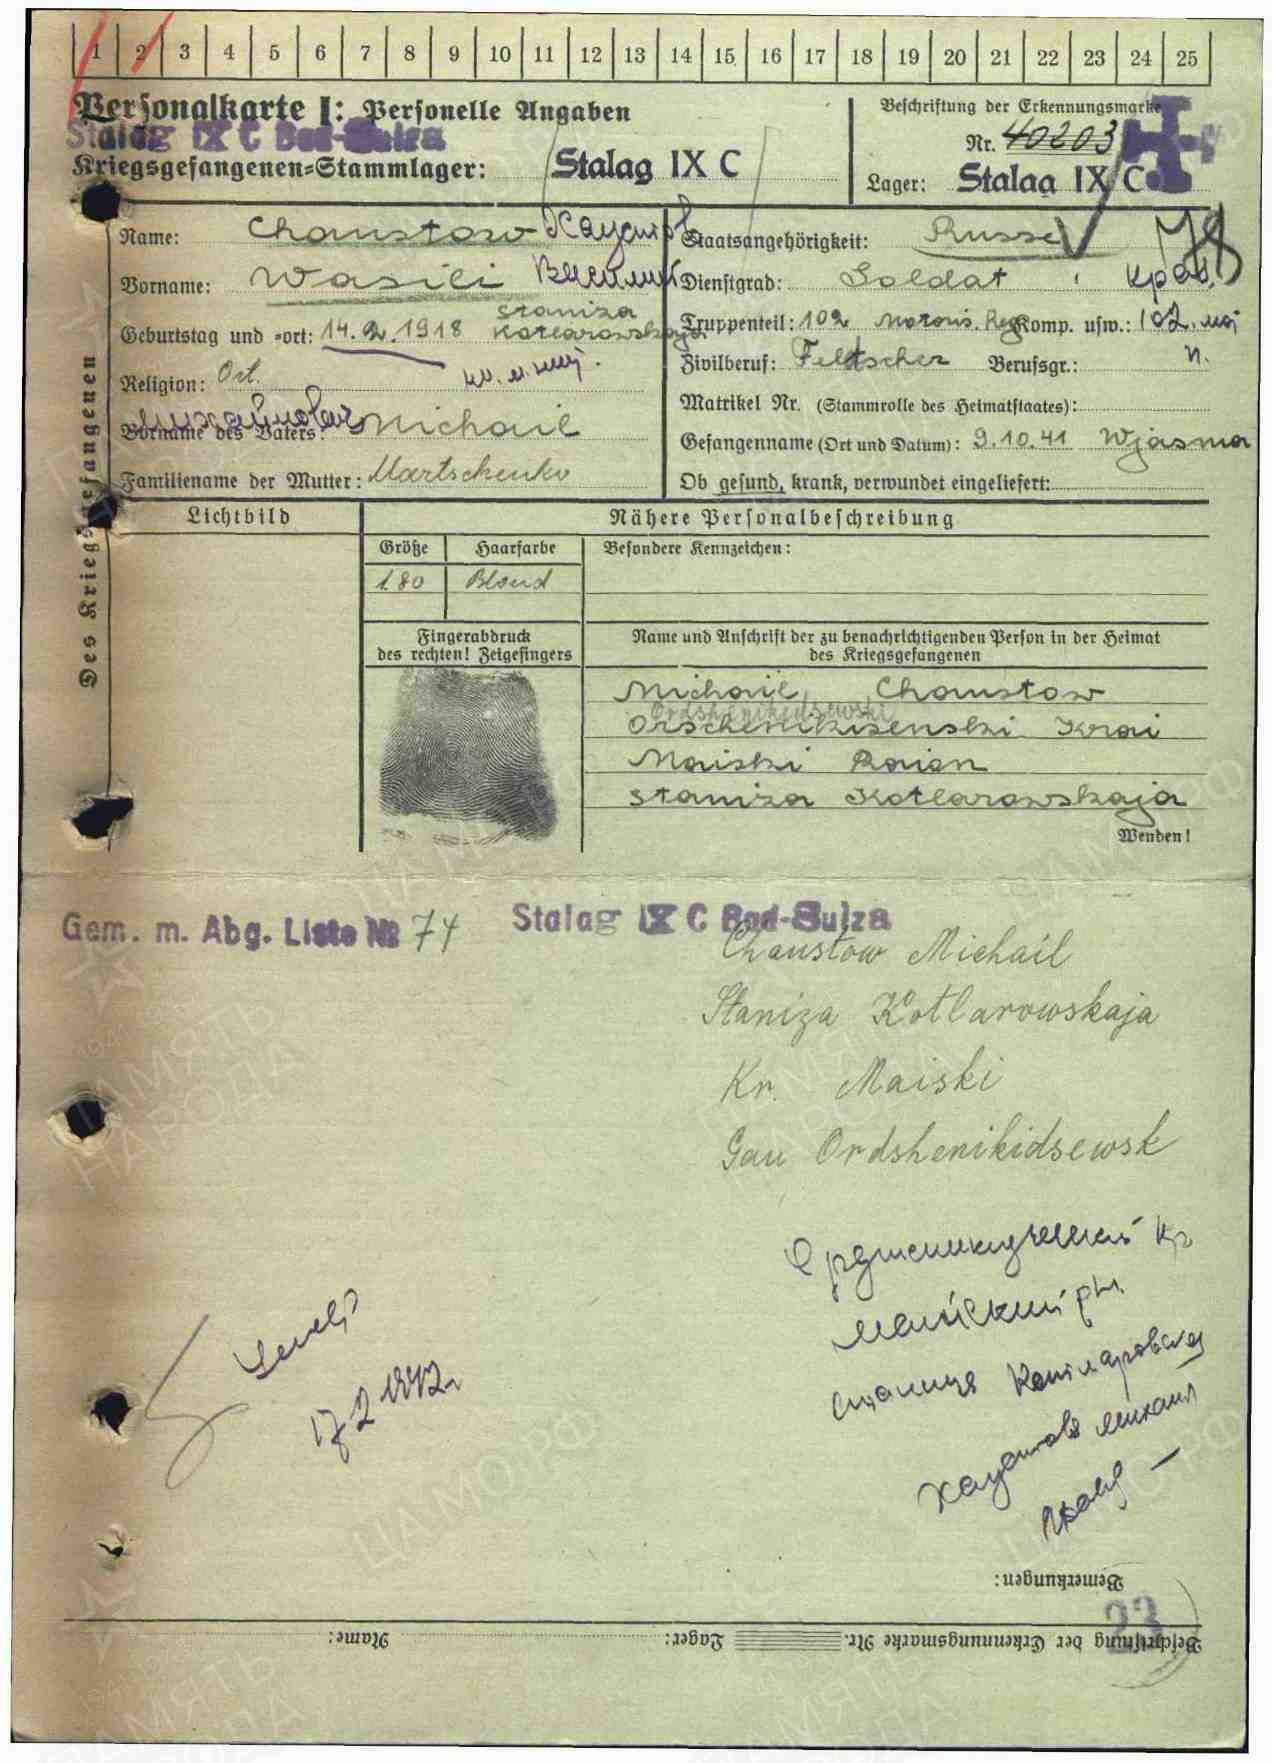 1 2 3 4 5 6 7 8 9 10 11 12 13 14 15 16 17 18 19 20 21 22 23 24 25
Personalkarte I: Personelle Angaben
Stalag IX C Bad-Sulza
Kriegsgefangenen-Stammlager: Stalag IX C
Beschriftung der Erkennungsmarke
Nr. 40203
Lager: Stalag IX C
Des Kriegsgefangenen
Name: Chaustow Хаустов
Vorname: Wasili Василий
Geburtstag und -ort: 14.2.1918 staniza Kotlarowskaja
Religion: Ort.
Михайлович
Vorname des Vaters: Michail
Familienname der Mutter: Martschenko
Staatsangehörigkeit: Russe
Dienstgrad: Soldat крас.
Truppenteil: 102 Motoris. Reg Komp. usw.: 102.
Zivilberuf: Feldscher Berufsgr.: п.
Matrikel Nr. (Stammrolle des Heimatstaates):
Gefangenname (Ort und Datum): 9.10.41 Wjasma
Ob gesund, krank, verwundet eingeliefert:
Lichtbild
Nähere Personalbeschreibung
Größe Haarfarbe Besondere Kennzeichen:
1.80 Blond
Fingerabdruck
des rechten! Zeigefingers
Name und Anschrift der zu benachrichtigenden Person in der Heimat
des Kriegsgefangenen
Michail Chaustow
Ordshenikidsewski
Orschenikisenski Krai
Maiski Raion
staniza Kotlarowskaja
Wenden!
Gem. m. Abg. Liste № 74
Stalag IX C Bad-Sulza
Chaustow Michail
Staniza Kotlarowskaja
Kr. Maiski
Gau Ordshenikidsewsk
Орджоникидзевский кр
Майский рн.
станица Котляровская
Хаустов Михаил
17 2 1942г
Bemerkungen:
23
Beschriftung der Erkennungsmarke Nr. Lager: Name: